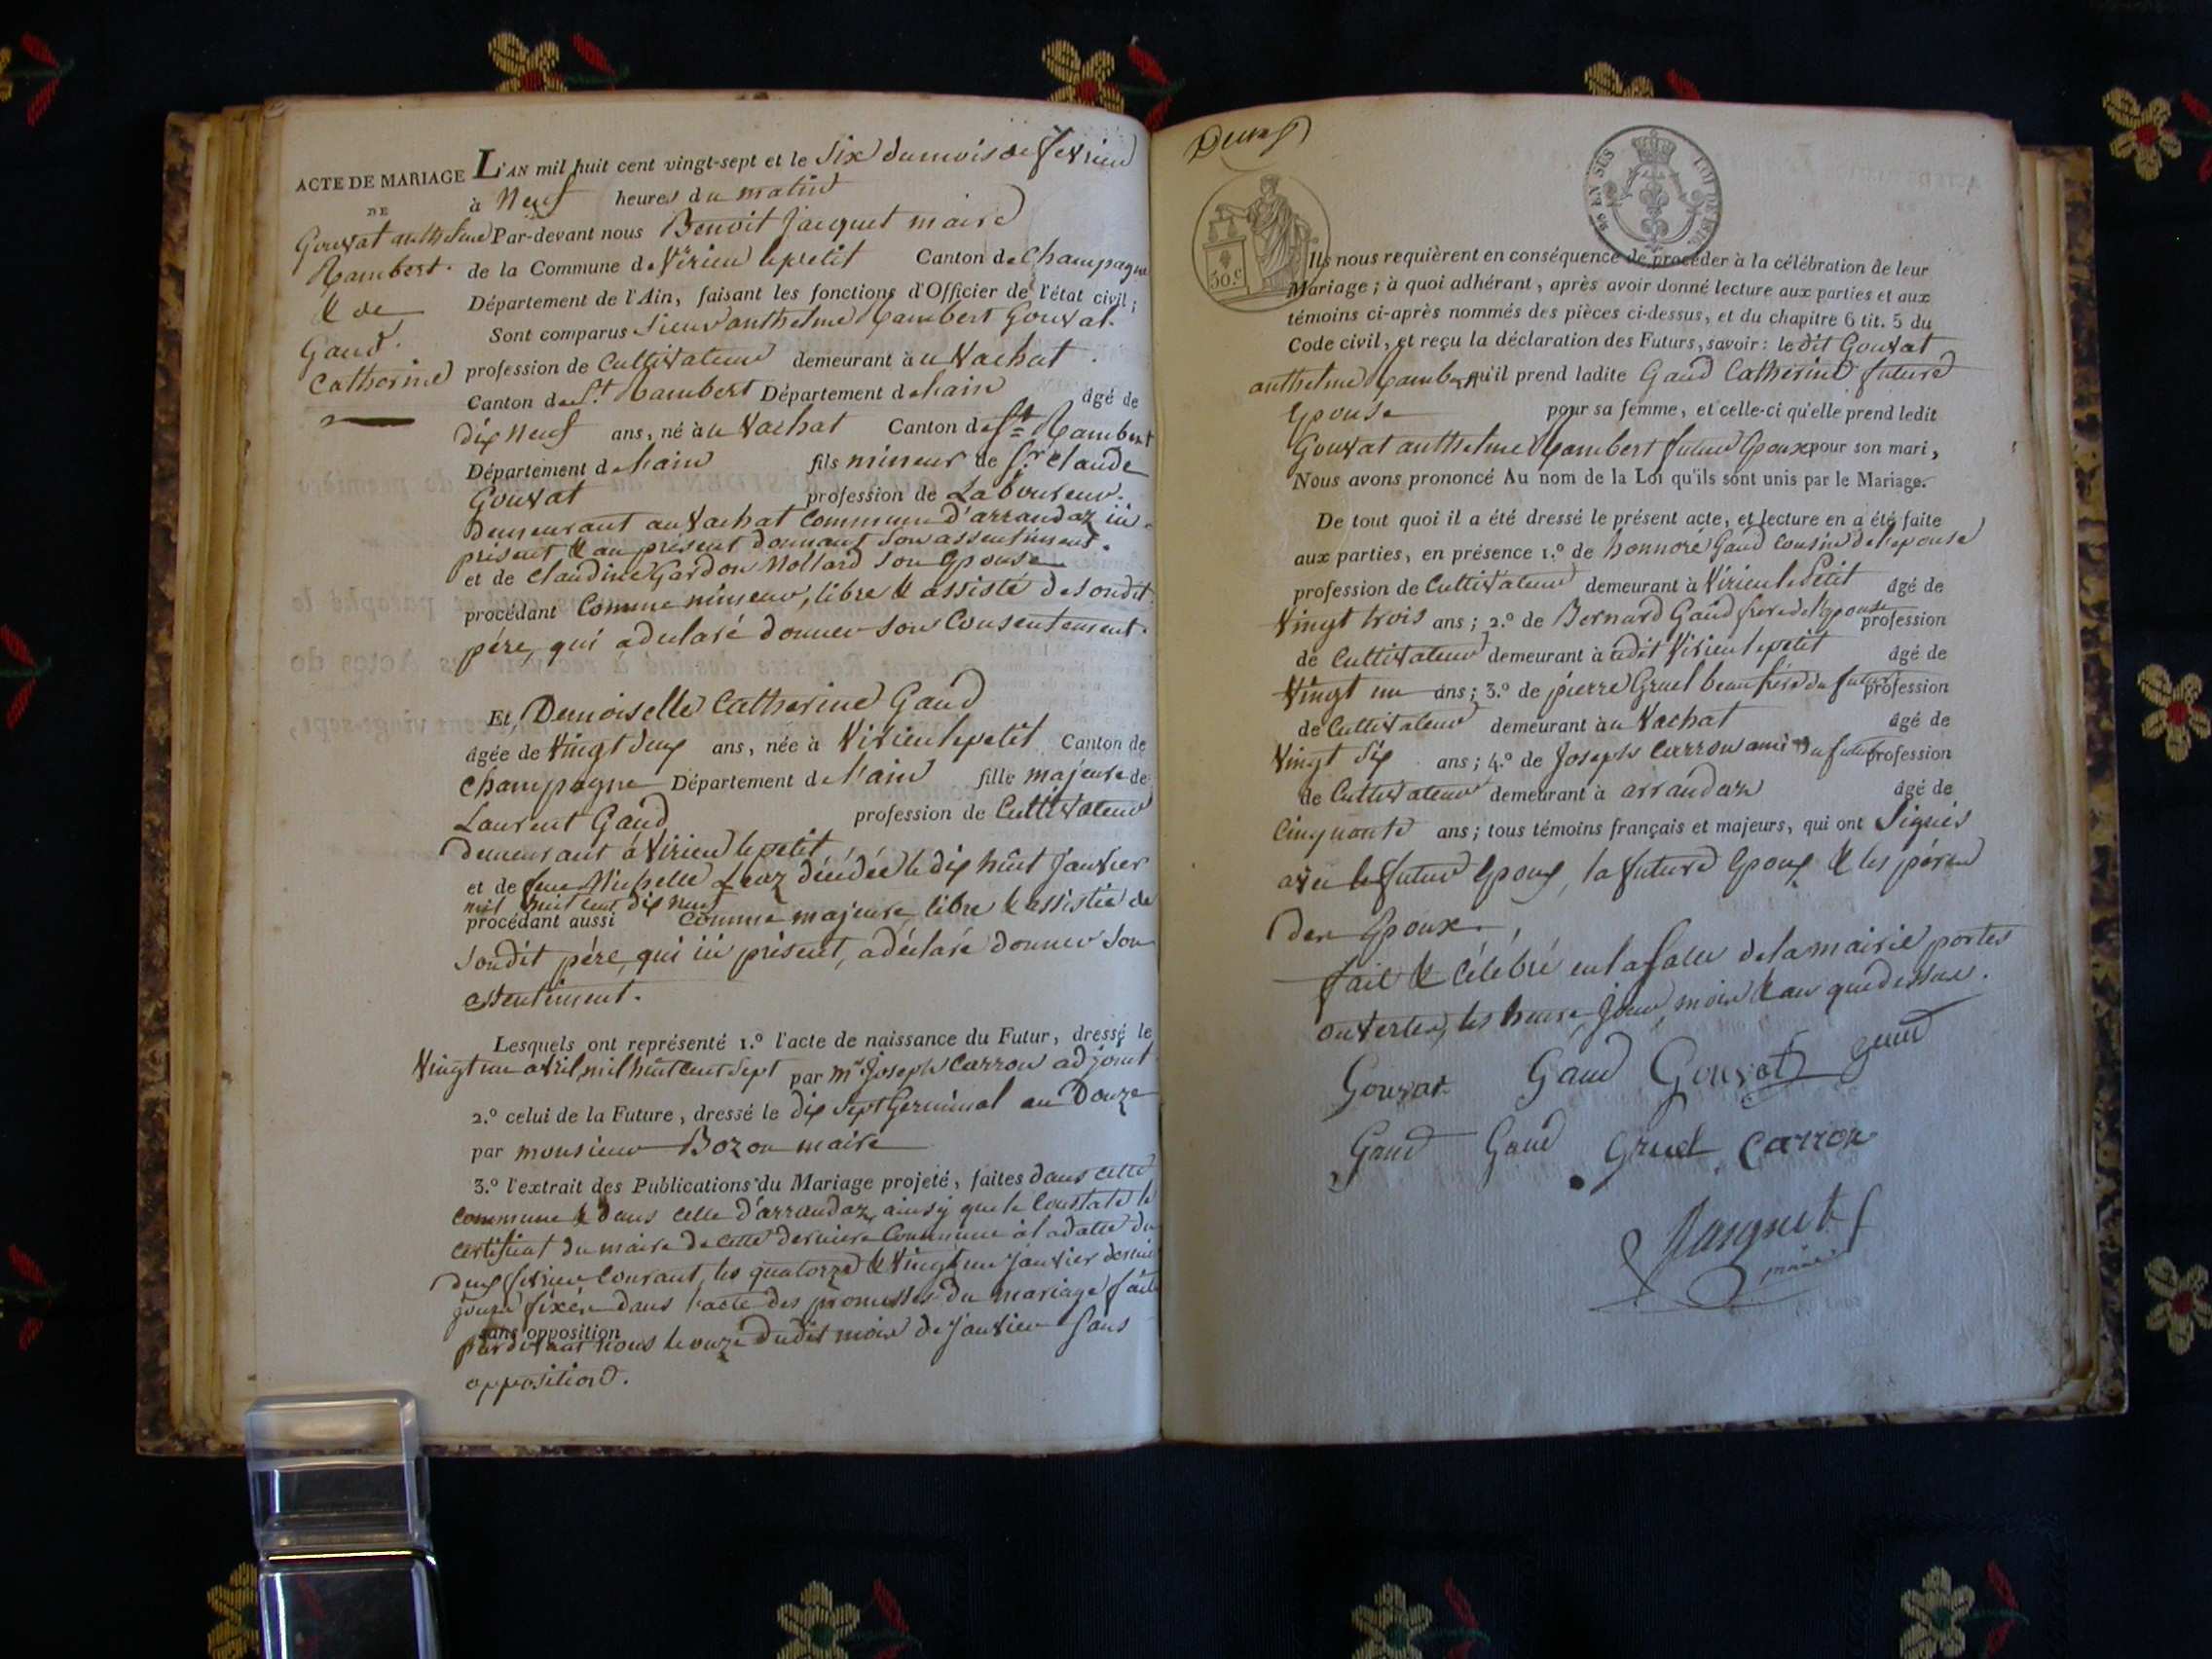 ACTE DE MARIAGE
DE
Gouvat anthelme
Rambert.
& de
Gaud.
Catherine
L'AN mil huit cent vingt-sept et le Six du mois de fevrier
à Neuf heures du matin
Par-devant nous Benoit Jacquet maire
de la Commune de Virieu le petit Canton de Champagne
Département de l'Ain, faisant les fonctions d'Officier de l'état civil;
Sont comparus Sieur anthelme Rambert Gouvat.
profession de Cultivateur demeurant à u Vachat.
Canton de St. Rambert Département de lain âgé de
dix Neuf ans, né à u Vachat Canton de St Rambert
Département de lain fils mineur de Sr. Claude
Gouvat profession de Laboureur.
Demeurant au Vachat Commune d'arrandaz ici
présent & au présent donnant son assentiment.
et de Claudine Gardon Mollard son Epouse
procédant Comme mineur, libre & assisté de son dit
pére, qui a declaré donner son Consentement.
Et, Demoiselle Catherine Gaud
âgée de Vingt deux ans, née à Virieu le petit Canton de
Champagne Département de l'ain fille majeure de
Laurent Gaud profession de Cultivateur
demeurant à Virieu le petit,
et de feue décédée le dix huit Janvier
mil huit cent dix neuf
procédant aussi Comme majeure libre & assistée de
son dit pére, qui ici présent, a déclaré donner son
assentiment.
Lesquels ont représenté 1.º l'acte de naissance du Futur, dressé le
Vingt un avril mil huit cent Sept par mr Joseph Carron adjoint
2.º celui de la Future, dressé le dix Sept Germinal an Douze
par monsieur Bozon maire
3.º l'extrait des Publications du Mariage projeté, faites dans cette
commune & dans celle d'arrandaz, ainsy que le Constate le
certificat du maire de cette derniere Commune à la datte du
deux fevrier Courant, les quatorze & Vingt un Janvier dernier
jours fixés dans l'acte des promesses du mariage fait
sans opposition
pardevant nous le onze dudit mois de Janvier sans
opposition.
Deux
50.c
EN SUS LOI DE 1816
Ils nous requièrent en conséquence de procéder à la célébration de leur
Mariage; à quoi adhérant, après avoir donné lecture aux parties et aux
témoins ci-après nommés des pièces ci-dessus, et du chapitre 6 tit. 5 du
Code civil, et reçu la déclaration des Futurs, savoir: le dit Gouvat
anthelme Rambert qu'il prend ladite Gaud Catherine future
Epouse pour sa femme, et celle-ci qu'elle prend ledit
Gouvat anthelme Rambert futur Epoux pour son mari,
Nous avons prononcé Au nom de la Loi qu'ils sont unis par le Mariage.
De tout quoi il a été dressé le présent acte, et lecture en a été faite
aux parties, en présence 1.º de honnoré Gaud Cousin de l'epouse
profession de Cultivateur demeurant à Virieu le Petit âgé de
Vingt trois ans; 2.º de Bernard Gaud frere de l'Epouse profession
de Cultivateur demeurant à udit Virieu le petit âgé de
Vingt un ans; 3.º de pierre Gruel beau frère du futur profession
de Cultivateur demeurant à u Vachat âgé de
Vingt Six ans; 4.º de Joseph Carron ami du futur profession
de Cultivateur demeurant à arrandaz âgé de
Cinquante ans; tous témoins français et majeurs, qui ont Signés
avec le futur Epoux, la future Epoux & les pères
des Epoux.
fait & Célébré en la Salle de la mairie portes
ouvertes, les heure jour, mois & an que dessus.
Gouvat Gaud Gouvat gaud
Gaud Gaud Gruel Carron
Jacquet
maire